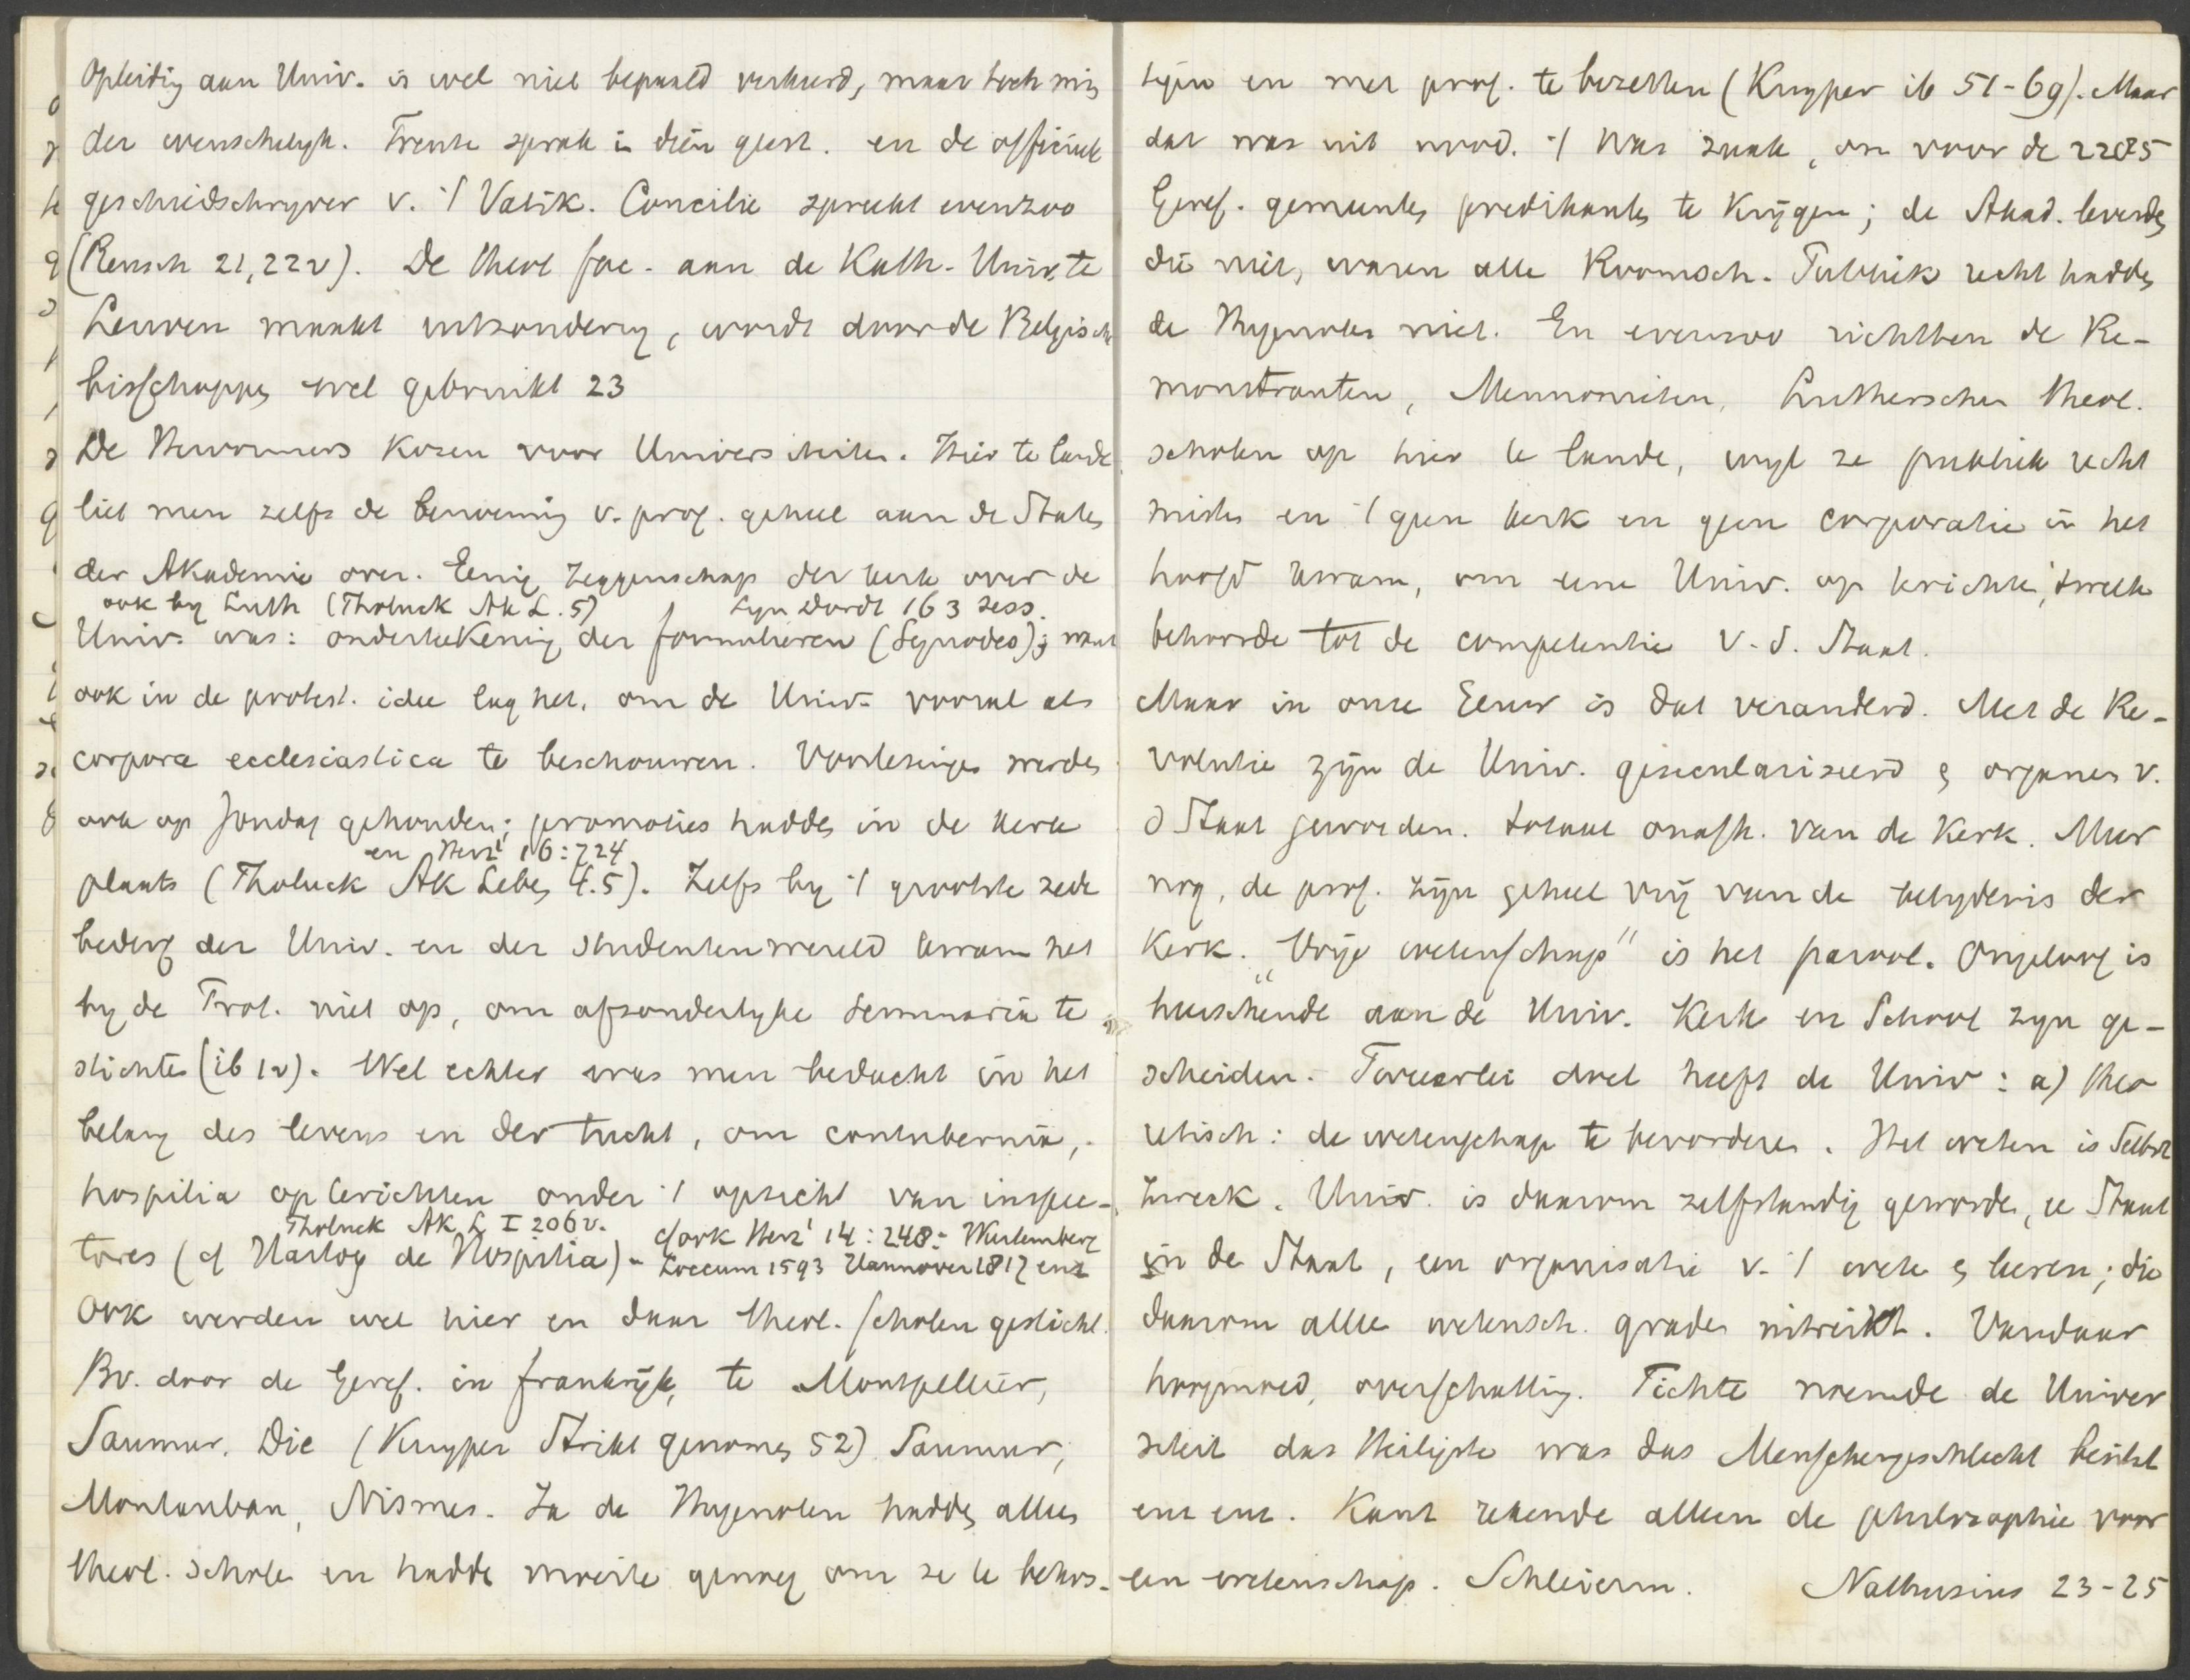 Opleidig aan Univ. is wel niet bepaald verkeerd, maar toch min
der wenschelyk. Trente sprak in dien geest. en de officieele
geschiedschryver v. 't Vatik. Concilie spreekt evenzoo
(Reusch 21, 22v). De theol fac. aan de Kath. Univ. te
Leuven maakt uitzondering, wordt door de Belgische
bisschoppen wel gebruikt 23
De Hervormers kozen voor Universiteiten. Hier te lande
liet men zelfs de benoeming v. prof. geheel aan de Staten
der Akademie over. Eenig zeggenschap der kerk over de
ook by Luth (Tholuck Ak L. 5) Syn Dordt 163 sess.
Univ. was: onderteekening der formulieren (Synodes); want
ook in de protest. idee lag het, om de Univ. vooral als
corpora ecclesiastica te beschouwen. Voorlezingen werden
ook op Zondag gehouden; promoties hadden in de kerk
en Herz¹ 16:724
plaats (Tholuck Ak Leben 4.5). Zelfs by 't grootste zede
bederf der Univ. en der studentenwereld kwam het
by de Prot. niet op, om afzonderlyke seminariën te
stichten (ib 1v). Wel echter was men bedacht in het
belang des levens en der tucht, om contubernia,
hospitia op te richten onder 't opzicht van inspec-
Tholuck Ak L I 206v. cf ook Herz¹ 14:248: Wurtemberg
tores (cf Hartog de Hospitia). Loccum 1593 Hannover 1817 enz
Ook werden wel hier en daar theol. scholen gesticht.
Bv. door de Geref. in Frankrijk, te Montpellier,
Saumur. Die (Kuyper Strikt genomen 52) Saumur,
Montauban, Nismes. Ja de Hugenoten hadden alleen
theol. scholen en hadden moeite genoeg om ze te behou-
den en met prof. te bezetten (Kuyper ib 51-69). Maar
dat was uit nood. 't Was zaak, om voor de 2285
Geref. gemeentes predikanten te krijgen; de Akad. leverden
die niet, waren alle Roomsch. Publiek recht hadden
de Hugenoten niet. En evenzoo richtten de Re-
monstranten, Mennonieten, Lutherschen theol.
scholen op hier te lande, wyl ze publiek recht
misten en 't geen kerk en geen corporatie in het
hoofd kwam, om eene Univ. op te richten, 'twelk
behoorde tot de competentie v. d. Staat.
Maar in onze Eeuw is dat veranderd. Met de Re-
volutie zijn de Univ. geseculariseerd & organen v.
d Staat geworden. totaal onafh. van de Kerk. Meer
nog, de prof. zijn geheel vrij van de belydenis der
Kerk. „Vrije wetenschap" is het parool. Ongeloof is
heerschende aan de Univ. Kerk en School zyn ge-
scheiden. Tweeërlei doel heeft de Univ: a) theo
retisch: de wetenschap te bevorderen. Het weten is Selbst
zweck. Univ. is daarom zelfstandig geworden, een Staat
in de Staat, een organisatie v. 't weten & leeren; die
daarom alle wetensch. graden uitreikt. Vandaar
hoogmoed, overschatting. Fichte noemde de Univer
siteit das Heiligste was das Menschengeschlecht besitzt
enz enz. Kant rekende alleen de philosophie voor
een wetenschap. Schleierm. Nathusius 23-25